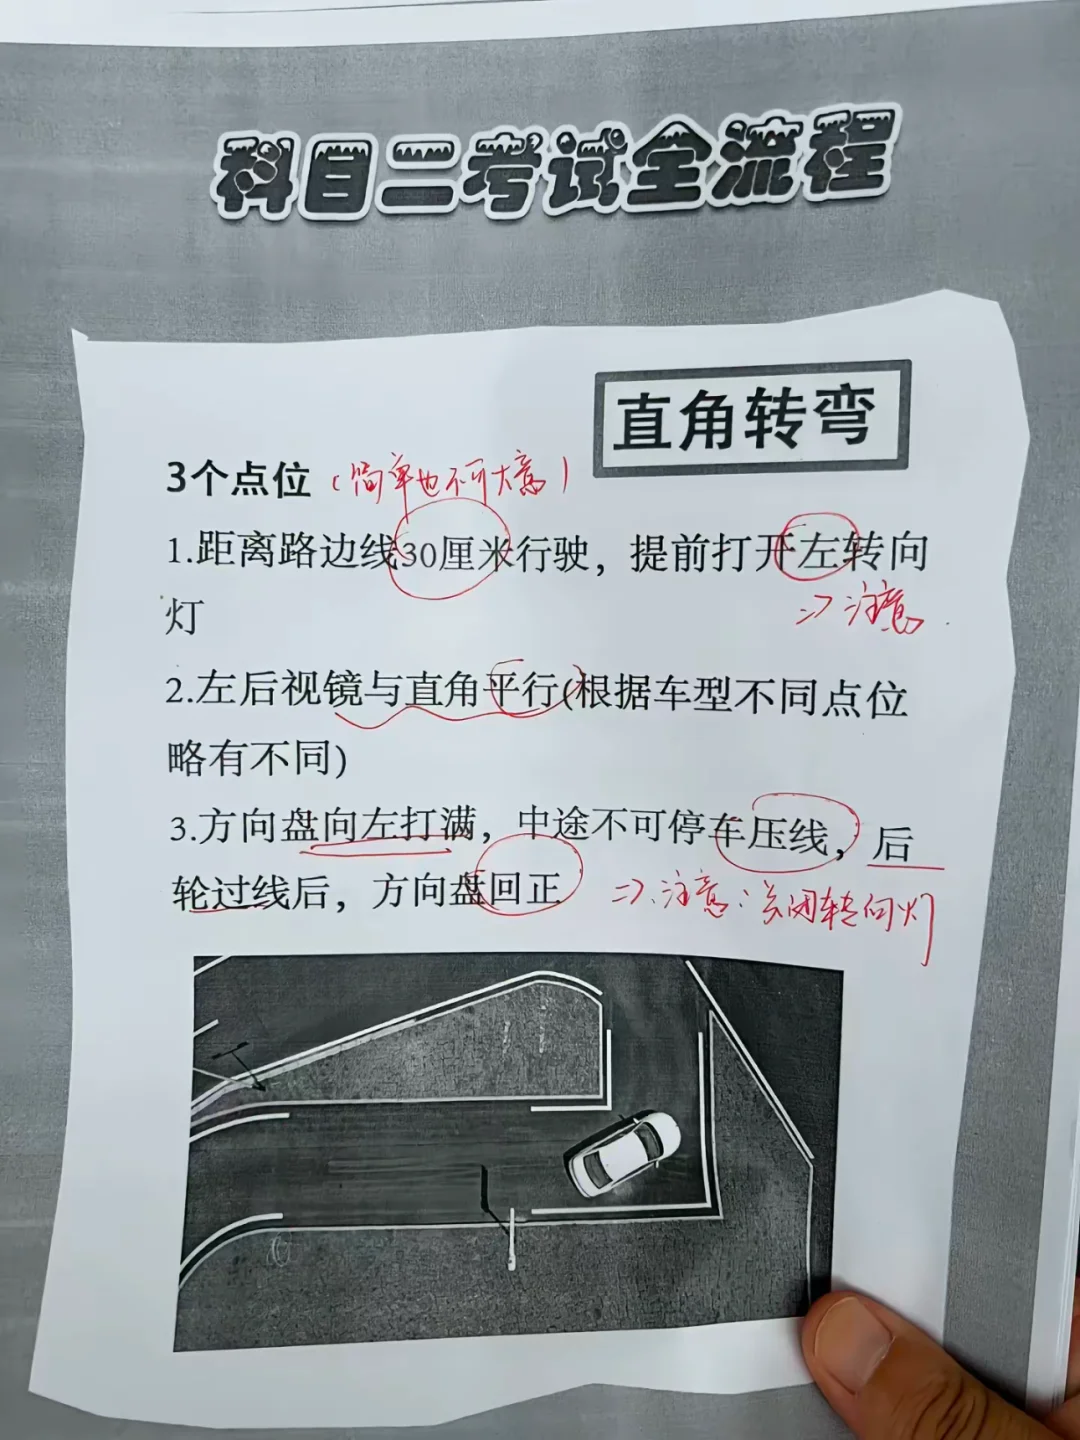 科目二考试全流程
直角转弯
3个点位（简单也不可大意）
1.距离路边线30厘米行驶，提前打开左转向
灯
=> 注意
2.左后视镜与直角平行(根据车型不同点位
略有不同)
3.方向盘向左打满，中途不可停车压线，后
轮过线后，方向盘回正
=> 注意：关闭转向灯